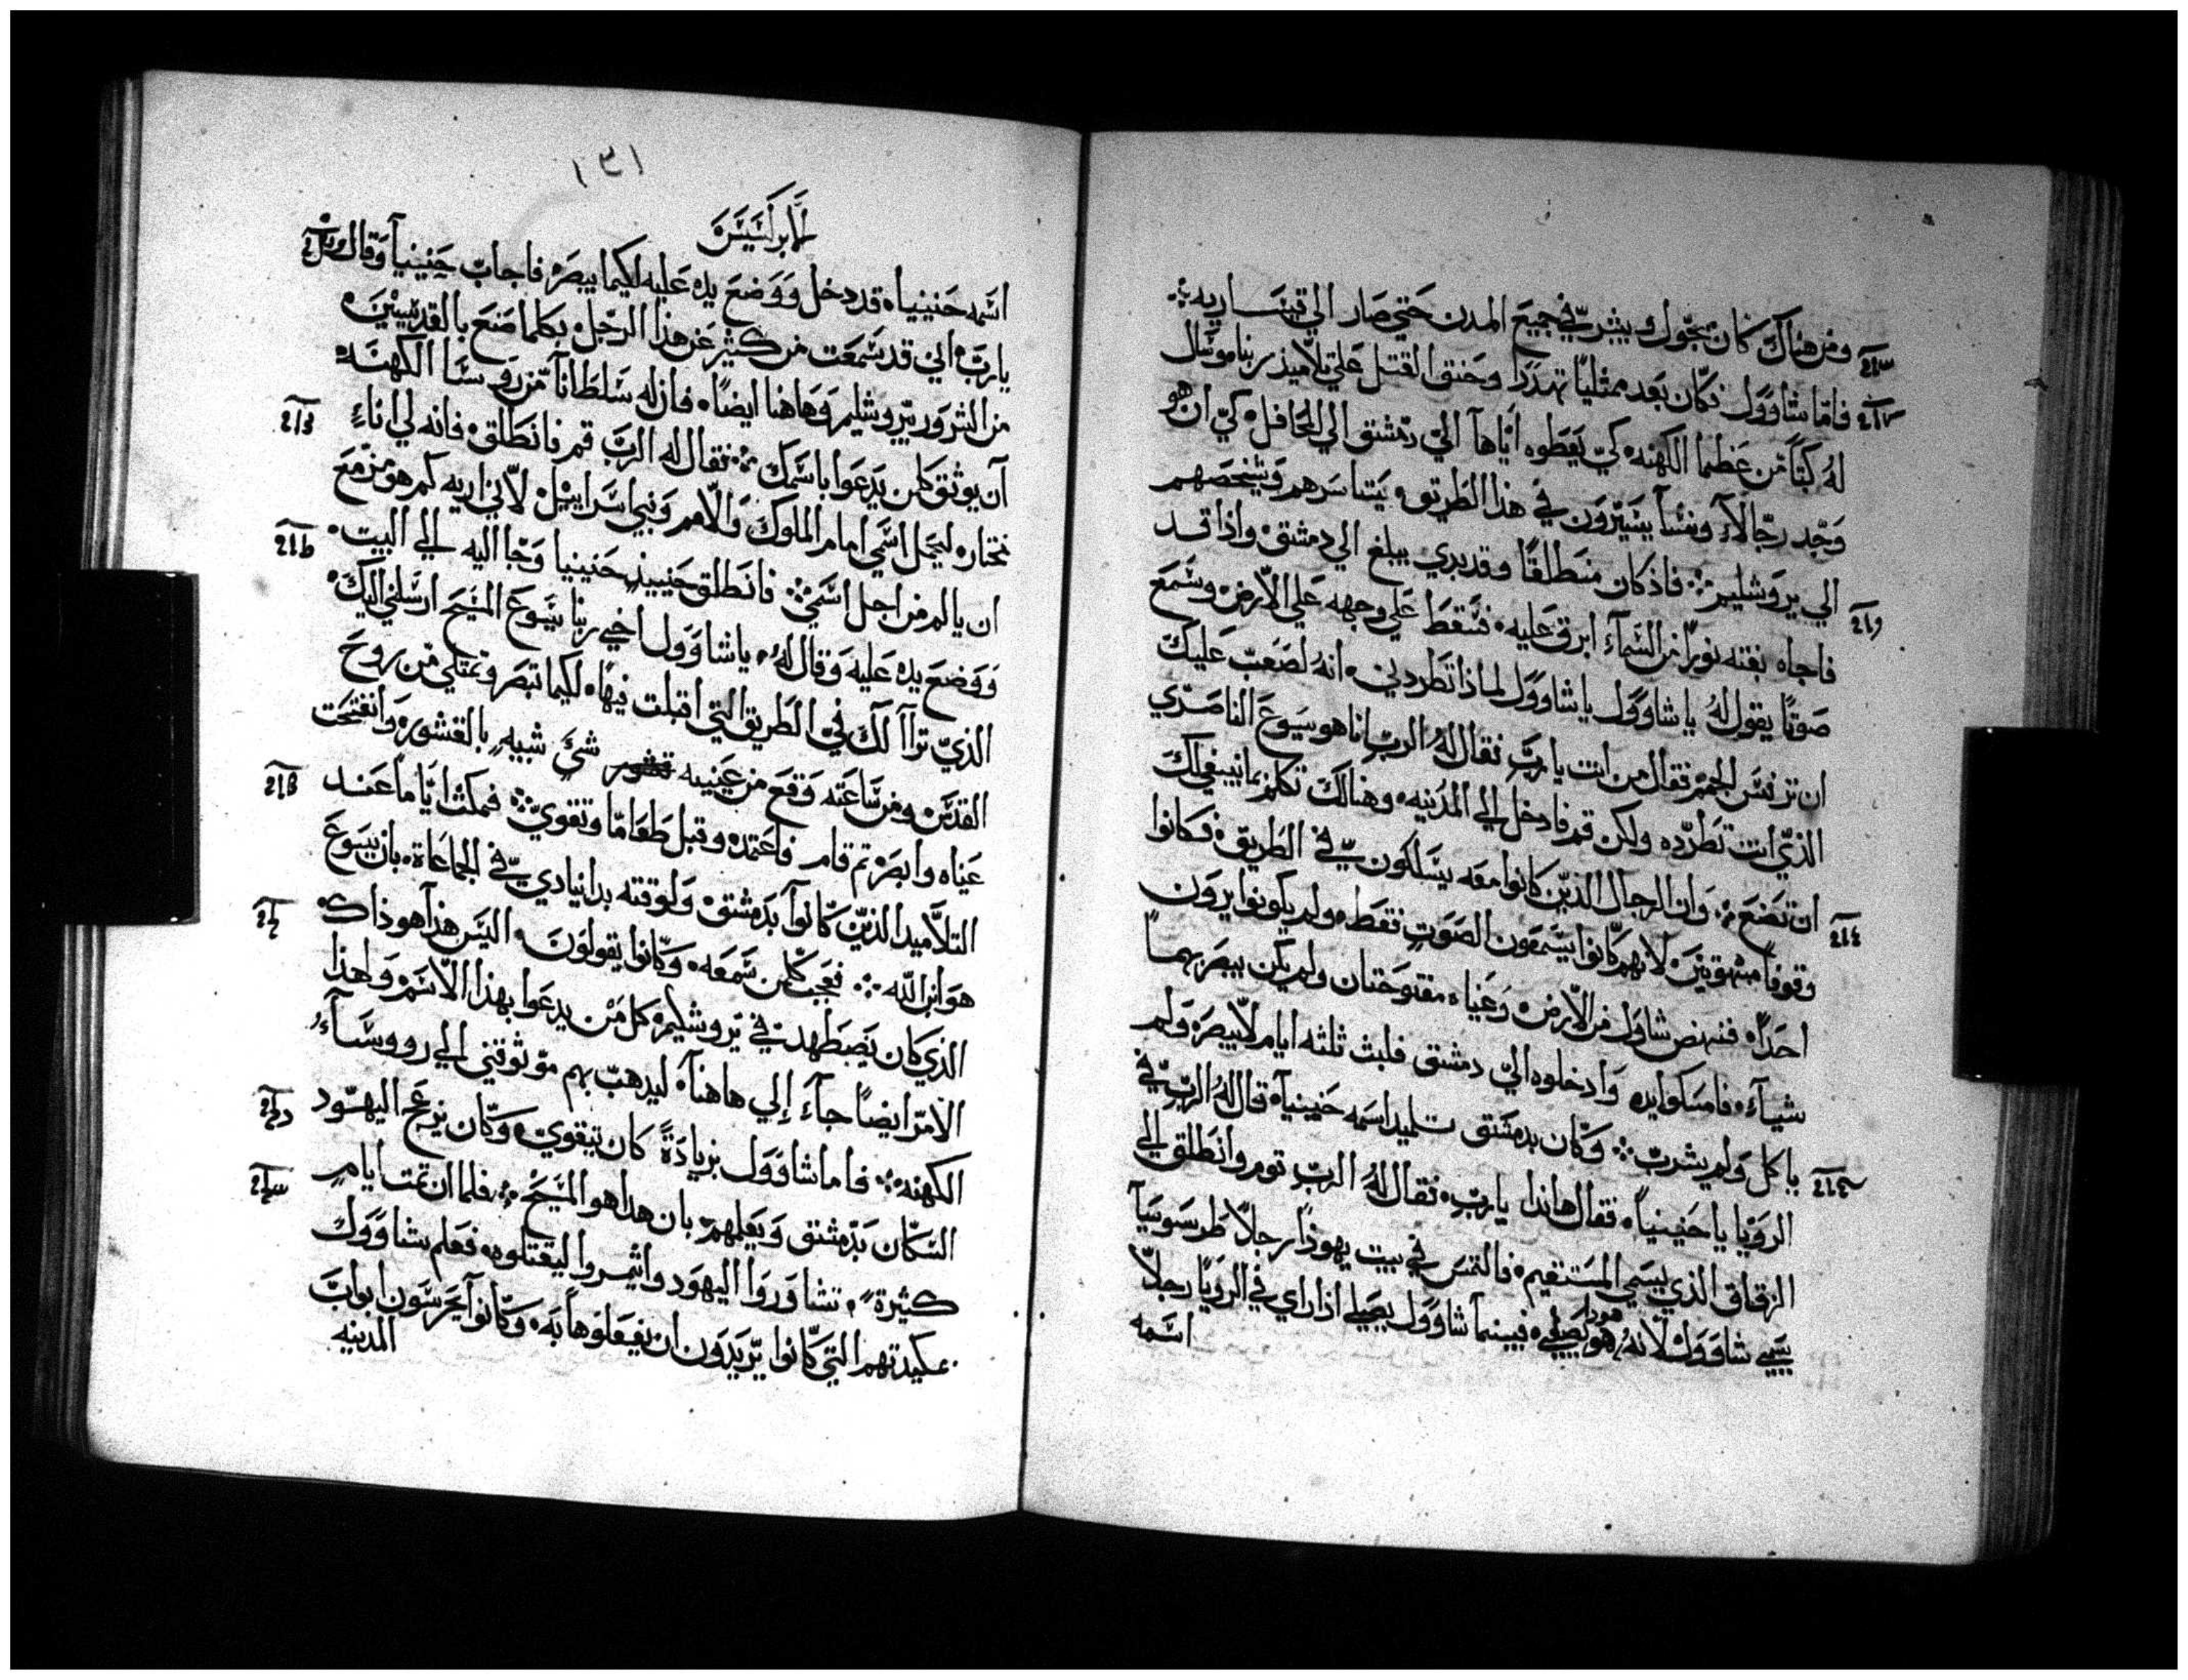 ومن هناك كان يجول ويبشر في جميع المدن حتي صار الي قيساريه
فاما شاوول فكان بعد ممتليا تهددا وحنق القتل علي تلاميذ ربنا وسال
له كتبا من عظما الكهنه كي يعطوه اياها الي دمشق الي المحافل كي ان هو
وجد رجالا ونسا يسيرون في هذا الطريق يتياسرهم ويشخصهم
الي يروشليم فاذ كان منطلقا وقد بدي يبلغ الي دمشق واذا قد
فاجاه بغته نورا من السماء ابرق عليه فسقط علي وجهه علي الارض وسمع
صوتا يقول له يا شاوول يا شاوول لماذا تطردني انه لصعب عليك
ان ترفس الجمر فقال من انت يا رب فقال له الرب انا هو يسوع الناصري
الذي انت تطرده ولكن قم فادخل الي المدينه وهنالك تكلم بما ينبغي لك
ان تضع وان الرجال الذين كانوا معه يسلكون في الطريق فكانوا
وقوفا مبهوتين لانهم كانوا يسمعون الصوت فقط ولم يكونوا يرون
احدا فنهض شاول من الارض وعيناه مفتوحتان ولم يكن يبصر بهما
شياء فامسكوا يده وادخلوه الي دمشق فلبث ثلثه ايام لا يبصر ولم
ياكل ولم يشرب وكان بدمشق تلميد اسمه حنينيا قال له الرب في
الرويا يا حنينيا فقال هاندا يا رب فقال له الرب قوم وانطلق الي
الزقاق الذي يسمي المستقيم فالتمس في بيت يهوذا رجلا طرسوسيا
يسمي شاوول لانه هوذا يصلي فبينما شاوول يصلي اذا راي في الرويا رجلا
اسمه
١٣١
اسمه حنينيا قد دخل ووضع يده عليه لكيما يبصر فاجاب حنينيا وقال
يا رب اني قد سمعت من كثير عن هذا الرجل بكلما اضع بالقديسين
من الشرور بيروشليم وهاهنا ايضا فان له سلطانا من روسا الكهنه
ان يوثق كلمن يدعوا باسمك فقال له الرب قم فانطلق فانه لي اناء
مختار ليحمل اسمي امام الملوك والامم وبني اسراييل لاني اريه كم هو مزمع
ان يالم من اجل اسمي فانطلق حنييذ حنينيا وجا اليه الي البيت
ووضع يده عليه وقال له يا شاوول اخي ربنا يسوع المسيح ارسلني اليك
الذي تراا لك في الطريق التي اقبلت فيها لكيما تبصر وتمتلي من روح
القدس ومن ساعته وقع من عينيه شي شبيه بالقشور وانفتحت
عيناه وابصر تم قام فاعتمد وقبل طعاما وتقوي فمكث اياما عند
التلاميد الذين كانوا بدمشق ولوقته بدا ينادي في الجماعة بان يسوع
هو ابن الله فعجب كلمن سمعه وكانوا يقولون اليس هذا هو ذاك
الذي كان يضطهد في يروشليم كل من يدعوا بهذا الاسم ولهذا
الامر ايضا جاء إلي هاهنا ليدهب بهم موثوقني الي رووساء
الكهنه فاما شاوول بزيادة كان يتقوي وكان يزعج اليهود
السكان بدمشق ويعلمهم بان هدا هو المسيح فلما ان تمت ايام
كثيرة تشاوروا اليهود وائتمروا ليقتلوه فعلم شاوول
بمكيدتهم التي كانوا يريدون ان يفعلوها به وكانوا يحرسون ابواب
المدينه